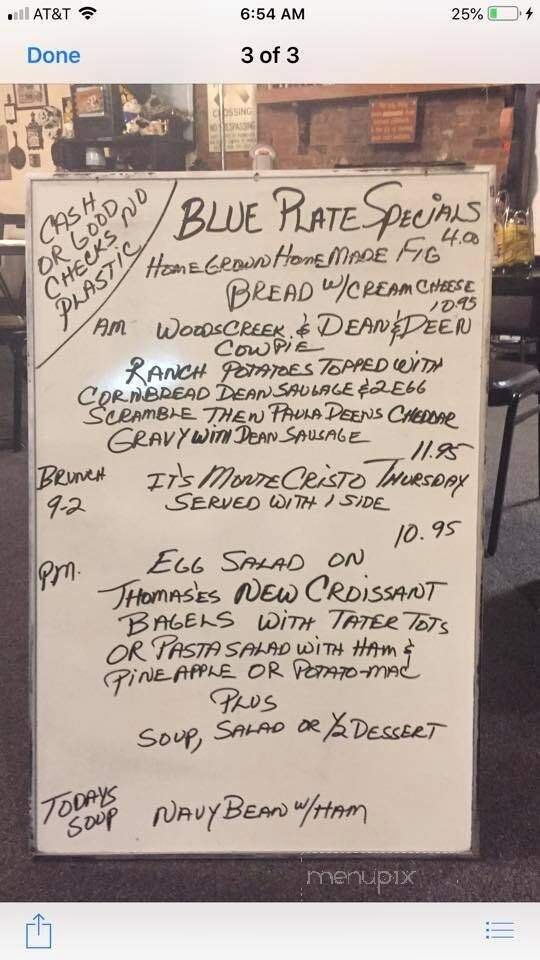 AT&T 6:54 AM 25%
Done 3 of 3
CROSSING
NO TRESPASSING
CASH
OR GOOD
CHECKS NO
PLASTIC
BLUE PLATE SPECIALS
HOMEGROWN HOMEMADE FIG 4.00
BREAD W/CREAM CHEESE
10.95
AM WOODSCREEK & DEAN & DEEN
COWPIE
RANCH POTATOES TOPPED WITH
CORNBREAD DEAN SAUSAGE & 2 EGG
SCRAMBLE THEN PAULA DEENS CHEDDAR
GRAVY WITH DEAN SAUSAGE
11.95
BRUNCH IT'S MONTE CRISTO THURSDAY
9-2 SERVED WITH 1 SIDE
10.95
PM. EGG SALAD ON
THOMAS'ES NEW CROISSANT
BAGELS WITH TATER TOTS
OR PASTA SALAD WITH HAM &
PINEAPPLE OR POTATO-MAC
PLUS
SOUP, SALAD OR 1/2 DESSERT
TODAYS
SOUP NAVY BEAN W/HAM
menupix